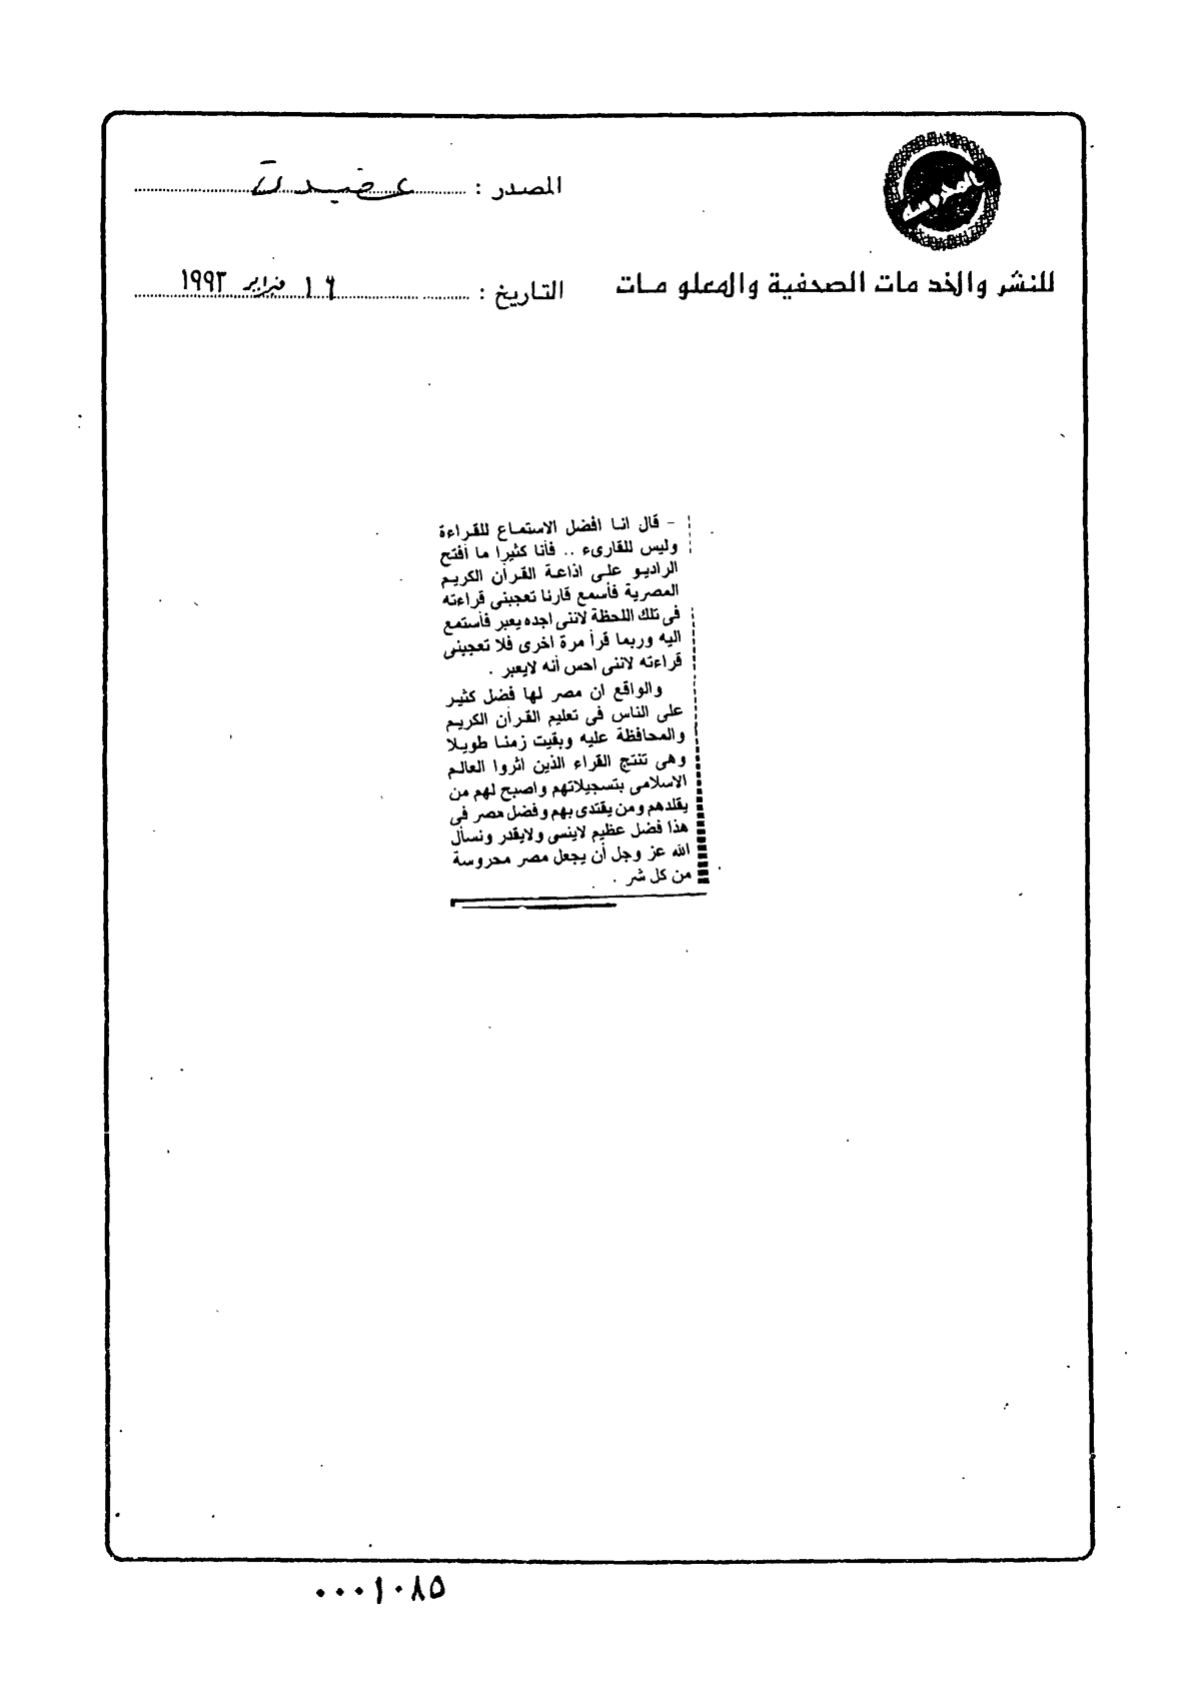 المحروسة
المصدر : عقيدتى
للنشر والخدمات الصحفية والمعلومات
التاريخ : ١٦ فبراير ١٩٩٣
- قال انا افضل الاستماع للقراءة
وليس للقارىء .. فأنا كثيرا ما أفتح
الراديو على اذاعة القرآن الكريم
المصرية فأسمع قارئا تعجبنى قراءته
فى تلك اللحظة لاننى اجده يعبر فأستمع
اليه وربما قرأ مرة اخرى فلا تعجبنى
قراءته لاننى احس أنه لايعبر .
والواقع ان مصر لها فضل كثير
على الناس فى تعليم القرآن الكريم
والمحافظة عليه وبقيت زمنا طويلا
وهى تنتج القراء الذين اثروا العالم
الاسلامى بتسجيلاتهم واصبح لهم من
يقلدهم ومن يقتدى بهم وفضل مصر فى
هذا فضل عظيم لاينسى ولايقدر ونسأل
الله عز وجل أن يجعل مصر محروسة
من كل شر .
٠٠٠١٠٨٥